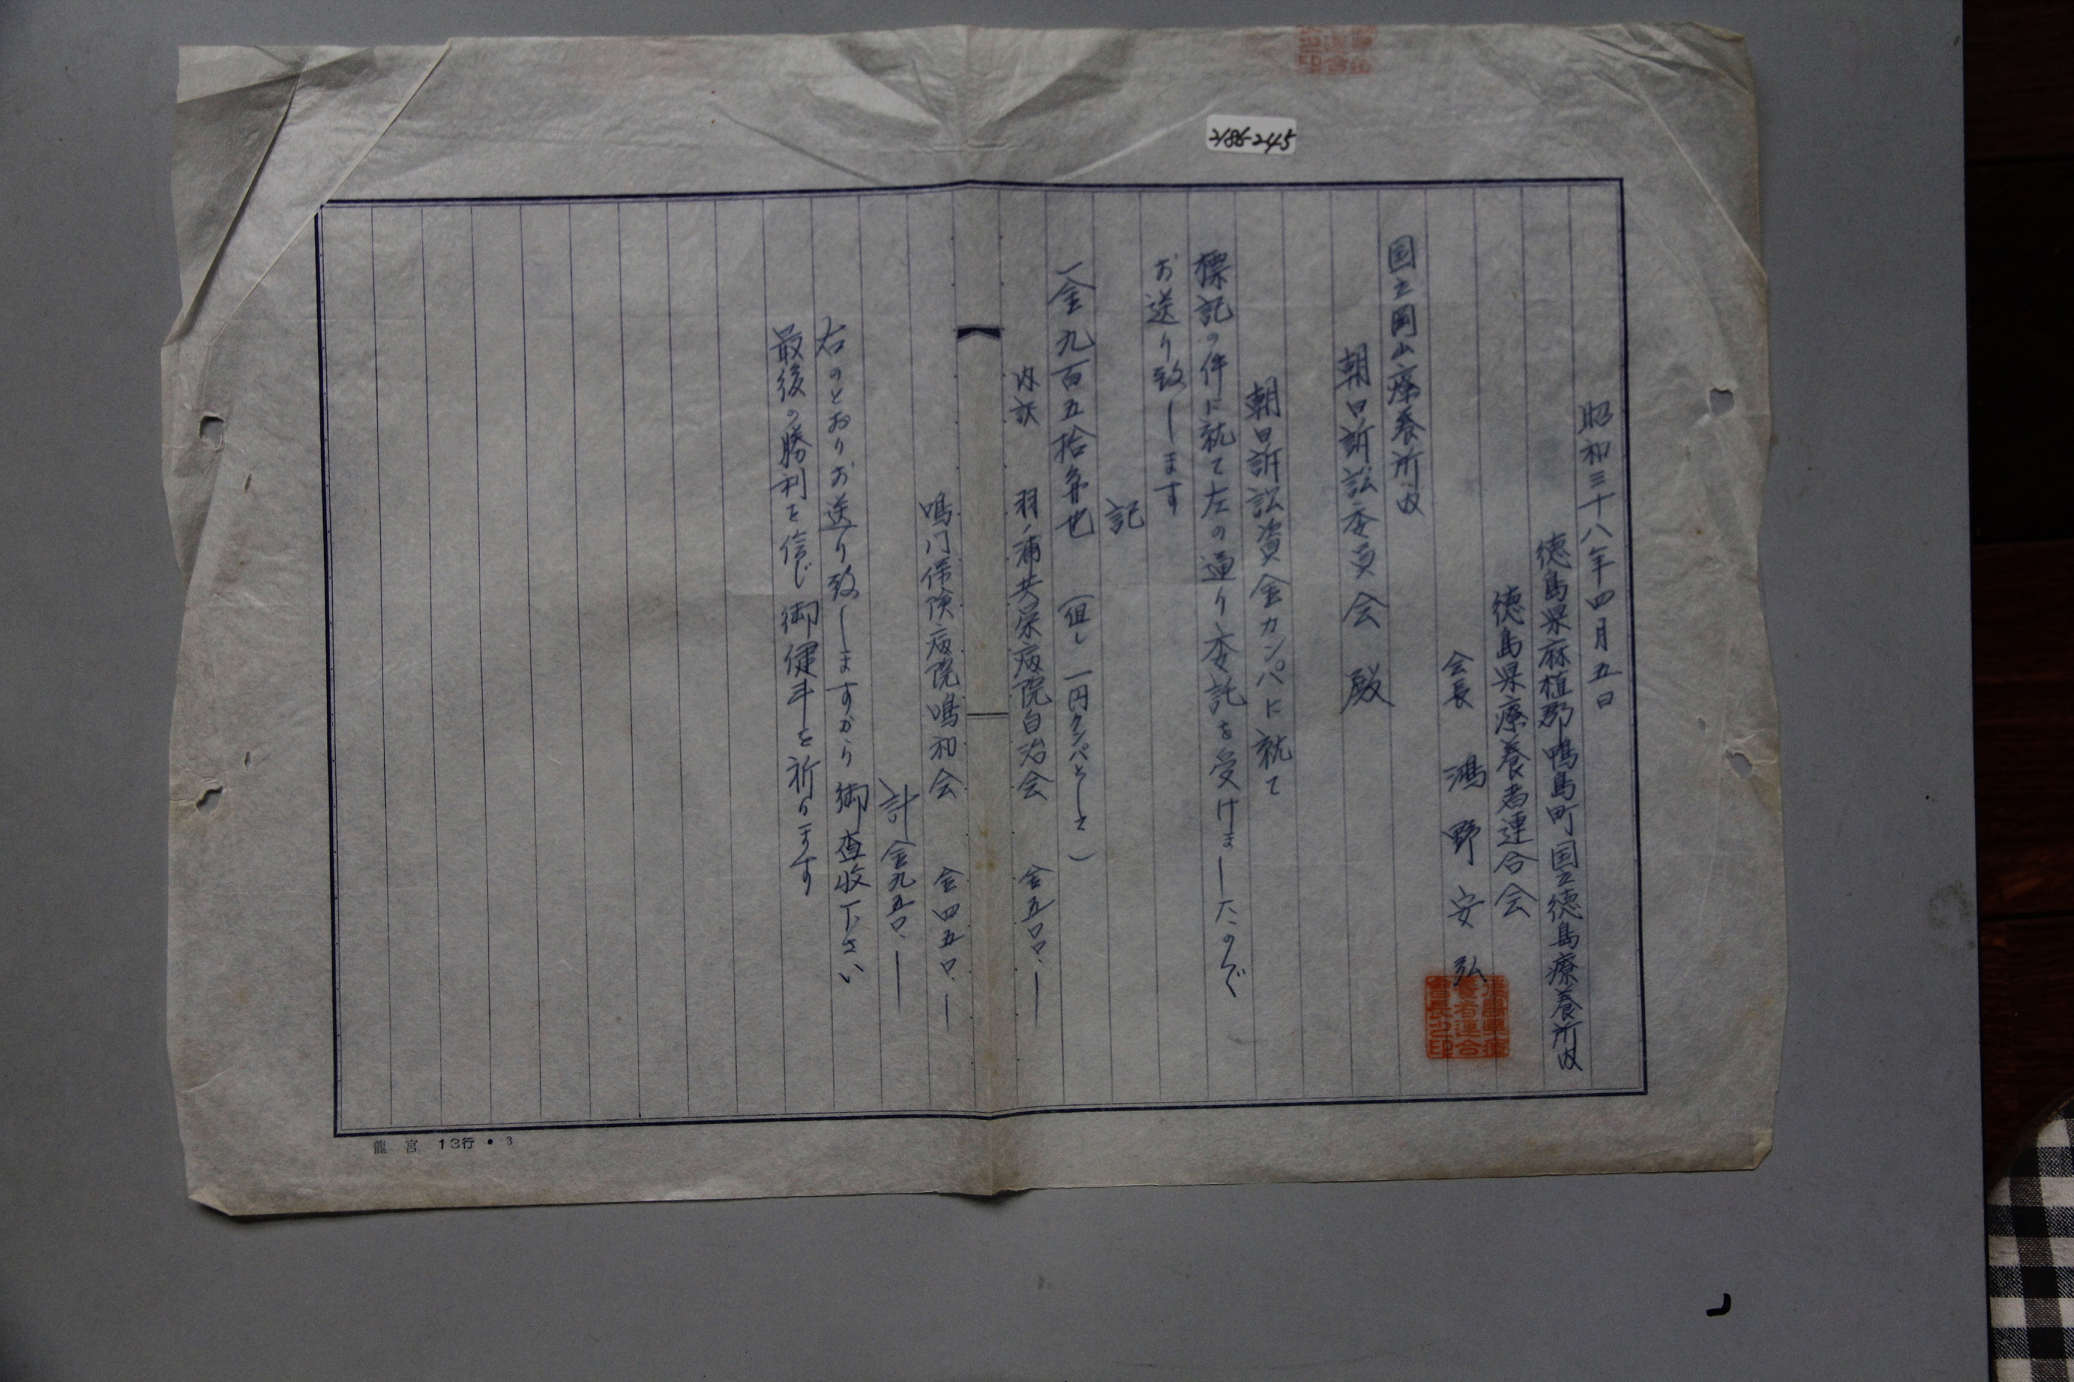 2186-245
昭和三十八年四月五日
徳島県麻植郡鴨島町国立徳島療養所内
徳島県療養者連合会
会長 鴻野安弘
徳島県療養者連合会長之印
国立岡山療養所内
朝日訴訟委員会殿
朝日訴訟資金カンパに就て
標記の件に就て左の通り委託を受けましたので
お送り致します
記
一金九百五拾円也 (但し一円カンパとして)
内訳 羽ノ浦共栄病院自治会 金五〇〇、―
鳴門保険病院鳴和会 金四五〇、―
計 金九五〇、―
右のとおりお送り致しますから御査収下さい
最後の勝利を信じ御健斗を祈ります
龍宮 13行・3